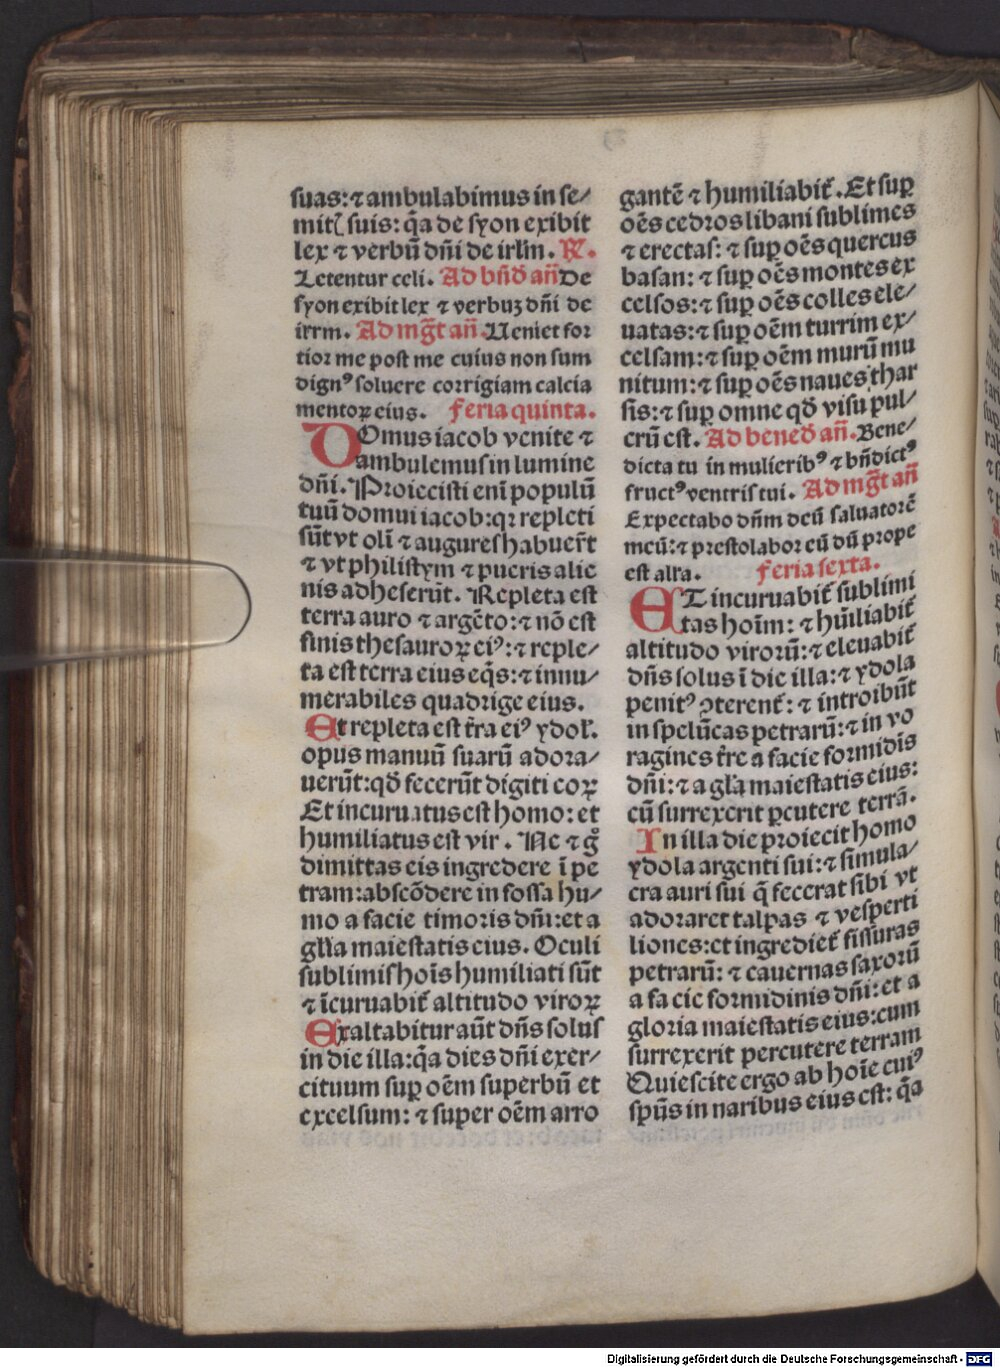 suas: ⁊ ambulabimus in se/
mitꝭ suis: q̃a de syon exibit
lex ⁊ verbũ dñi de irlm̃. R.
Letentur celi. Ad bñd̃ añ De
syon exibit lex ⁊ verbuꝫ dñi de
irrm. Ad mg̃t añ. Ueniet for
tior me post me cuius non sum
dignꝰ soluere corrigiam calcia
mentoꝝ eius. feria quinta.
DOmus iacob venite ⁊
ambulemus in lumine
dñi. Proiecisti eni᷑ populũ
tuũ domui iacob: qꝛ repleti
sũt vt oli᷑ ⁊ augures habuer̃t
⁊ vt philistym ⁊ pueris alie
nis adheserũt. Repleta est
terra auro ⁊ argẽto: ⁊ nõ est
finis thesauroꝝ eiꝰ: ⁊ reple/
ta est terra eius eq̃s: ⁊ innu/
merabiles quadrige eius.
Et repleta est t̃ra eiꝰ ydol̃.
opus manuũ suarũ adora/
uerũt: qd̃ fecerũt digiti eoꝝ
Et incuruatus est homo: et
humiliatus est vir. Ne ⁊ g̊
dimittas eis ingredere ĩ pe
tram: abscõdere in fossa hu/
mo a facie timoris dñi: et a
gl̃ia maiestatis eius. Oculi
sublimis hoĩs humiliati sũt
⁊ ĩcuruabit᷑ altitudo viroꝝ
Exaltabitur aũt dñs solus
in die illa: q̃a dies dñi exer/
cituum suꝑ oẽm superbũ et
excelsum: ⁊ super oẽm arro
gantẽ ⁊ humiliabit᷑. Et suꝑ
oẽs cedros libani sublimes
⁊ erectas: ⁊ suꝑ oẽs quercus
basan: ⁊ suꝑ oẽs montes ex
celsos: ⁊ suꝑ oẽs colles ele/
uatas: ⁊ suꝑ oẽm turrim ex/
celsam: ⁊ suꝑ oẽm murũ mu
nitum: ⁊ suꝑ oẽs naues thar
sis: ⁊ suꝑ omne qd̃ visu pul/
crũ est. Ad bened̃ añ. Bene/
dicta tu in mulieribꝰ ⁊ bñdictꝰ
fructꝰ ventris tui. Ad mg̃t añ
Expectabo dñm deũ saluatorẽ
meũ: ⁊ prestolabor eũ dũ prope
est all̃a. feria sexta.
ET incuruabit᷑ sublimi
tas hoĩm: ⁊ hũiliabit᷑
altitudo virorũ: ⁊ eleuabit᷑
dñs solus ĩ die illa: ⁊ ydola
penitꝰ ꝯterent᷑: ⁊ introibũt
in spelũcas petrarũ: ⁊ in vo
ragines t̃re a facie formidĩs
dñi: ⁊ a gl̃a maiestatis eius:
cũ surrexerit ꝑcutere terrã.
In illa die proiecit homo
ydola argenti sui: ⁊ simula/
cra auri sui q̃ fecerat sibi vt
adoraret talpas ⁊ vesperti
liones: et ingrediet᷑ fissuras
petrarũ: ⁊ cauernas saxorũ
a facie formidinis dñi: et a
gloria maiestatis eius: cum
surrexerit percutere terram
Quiescite ergo ab hoĩe cuiꝰ
spũs in naribus eius est: q̃a
Digitalisierung gefördert durch die Deutsche Forschungsgemeinschaft - DFG